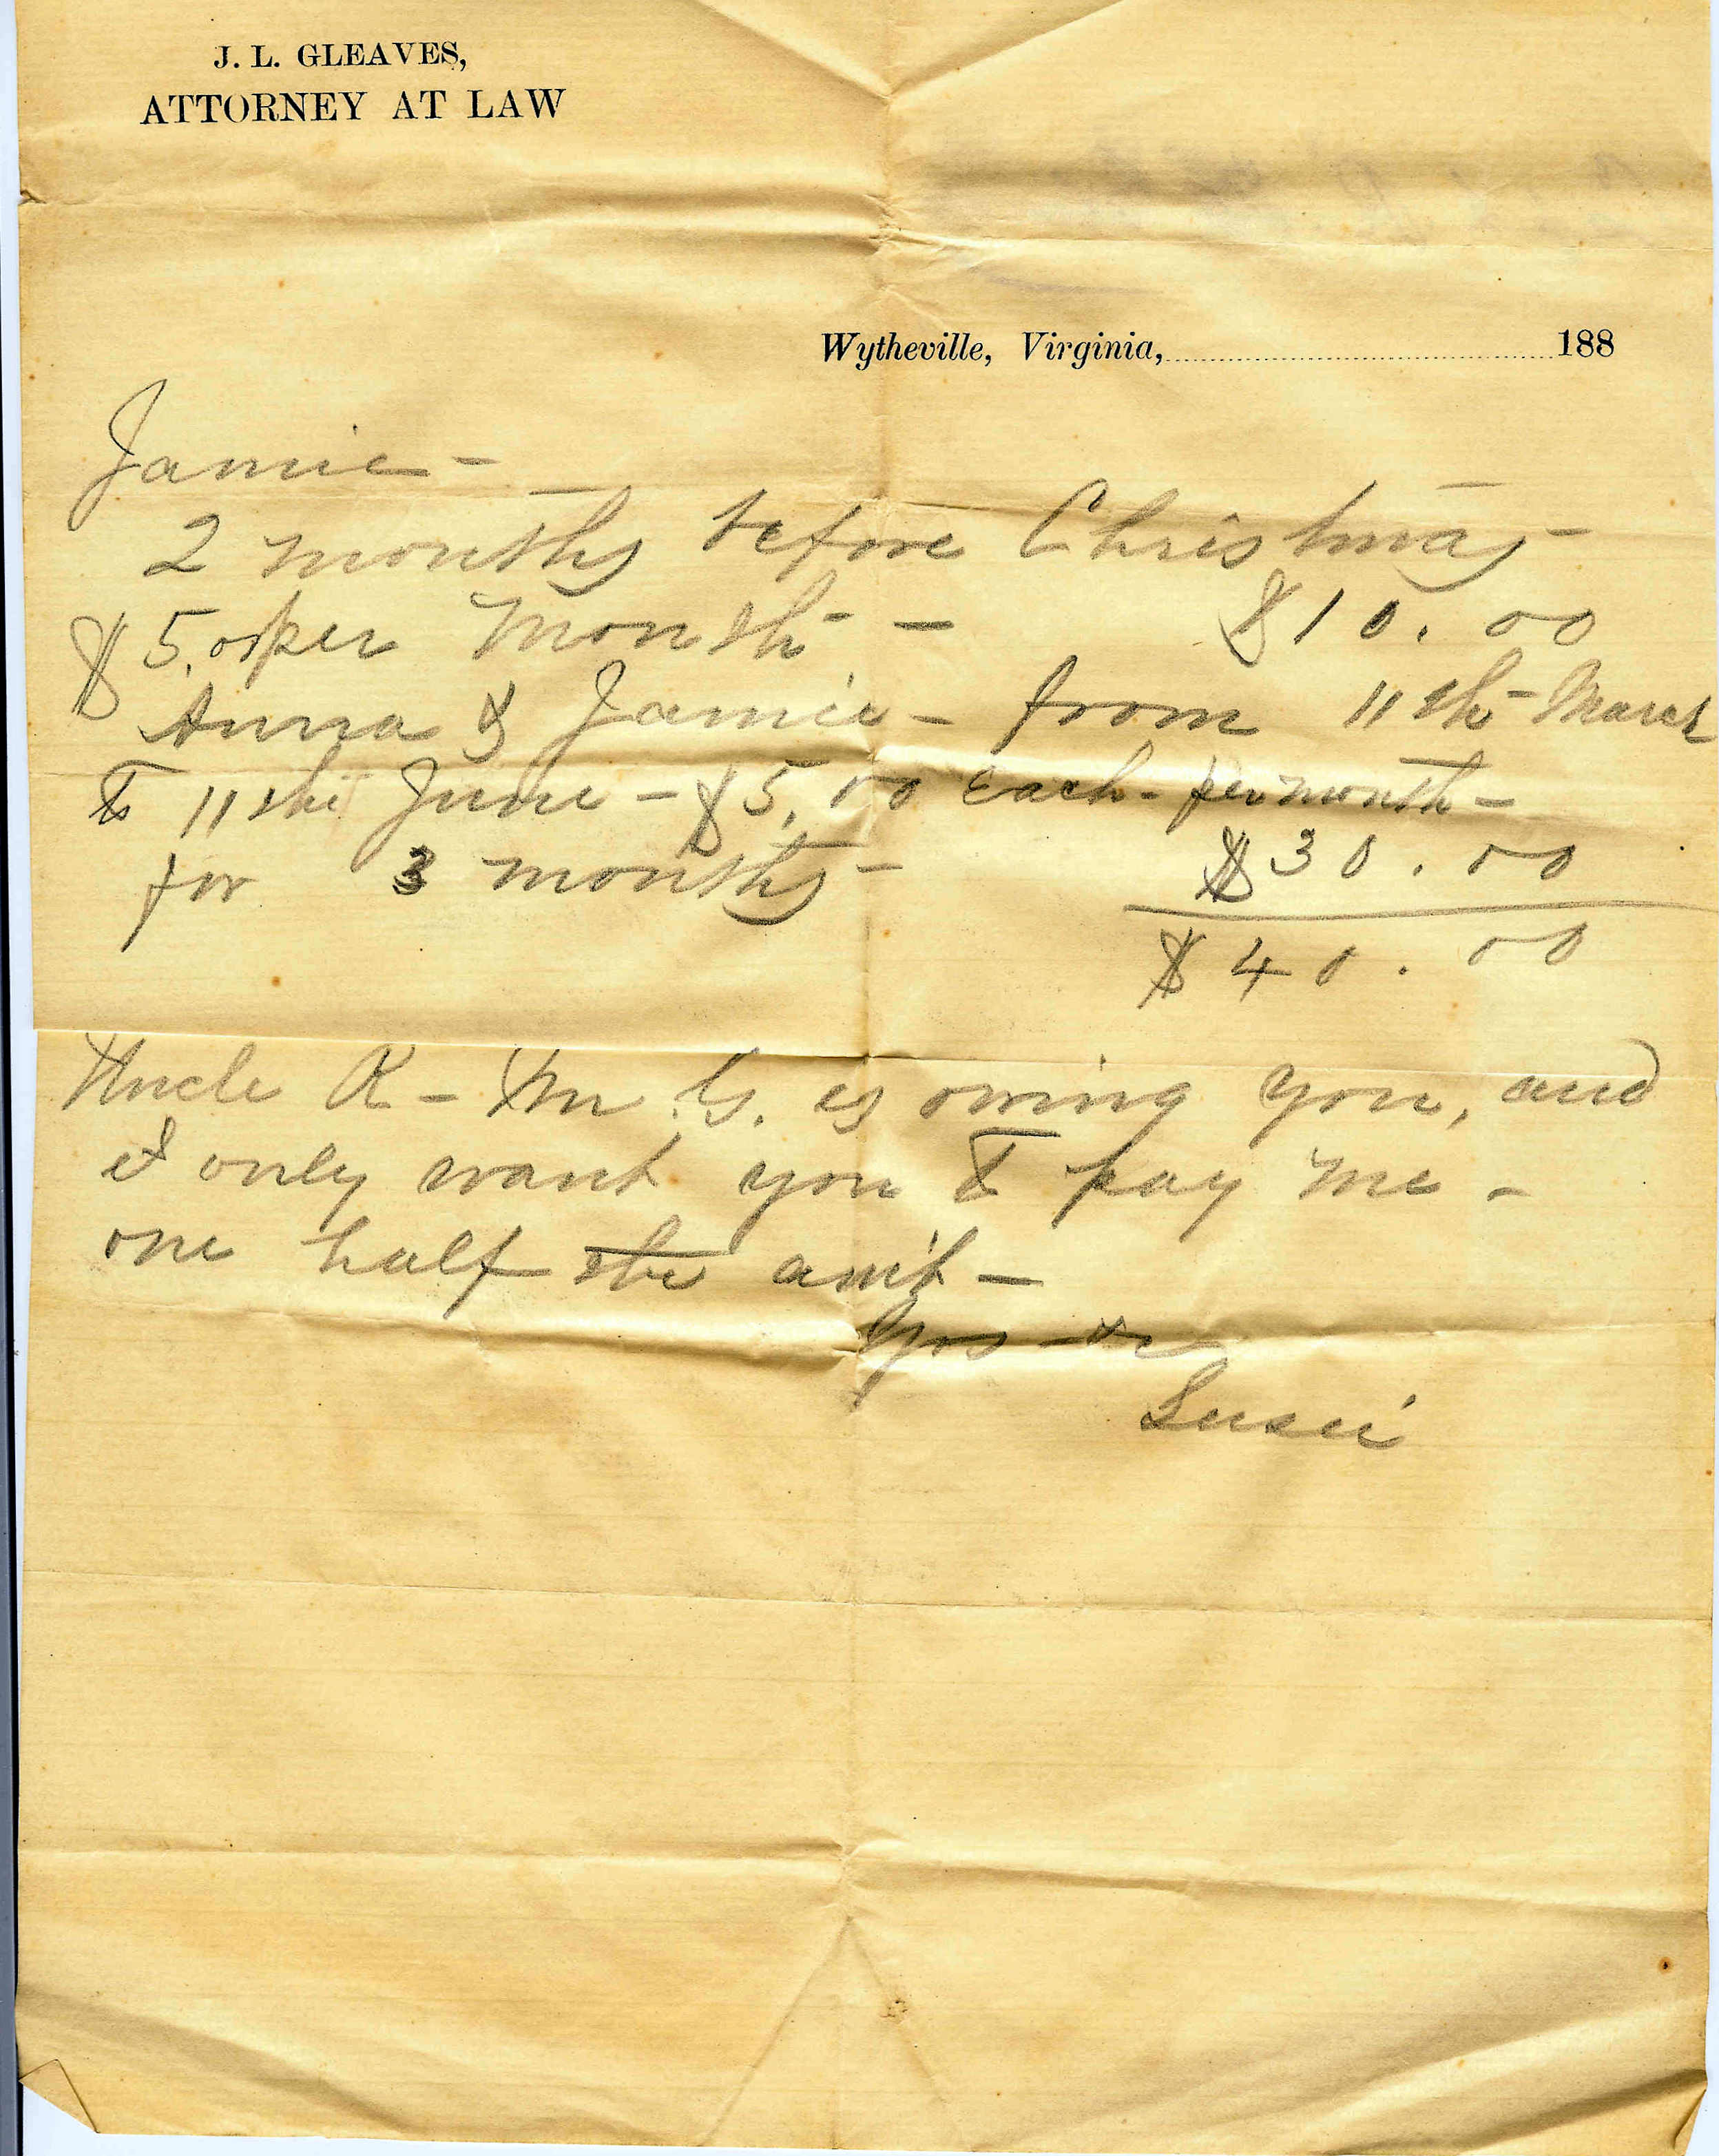 J. L. GLEAVES,
ATTORNEY AT LAW
Wytheville, Virginia, 188
Jamie -
2 months before Christmas -
$5.00 per Month - $10.00
Anna & Jamie - from 11th March
to 11th June - $5.00 each - per month -
for 3 months - $30.00
$40.00
Uncle R - Mr G. is owing you, and
I only want you to pay me -
one half the am't -
Yrs &c
Susie